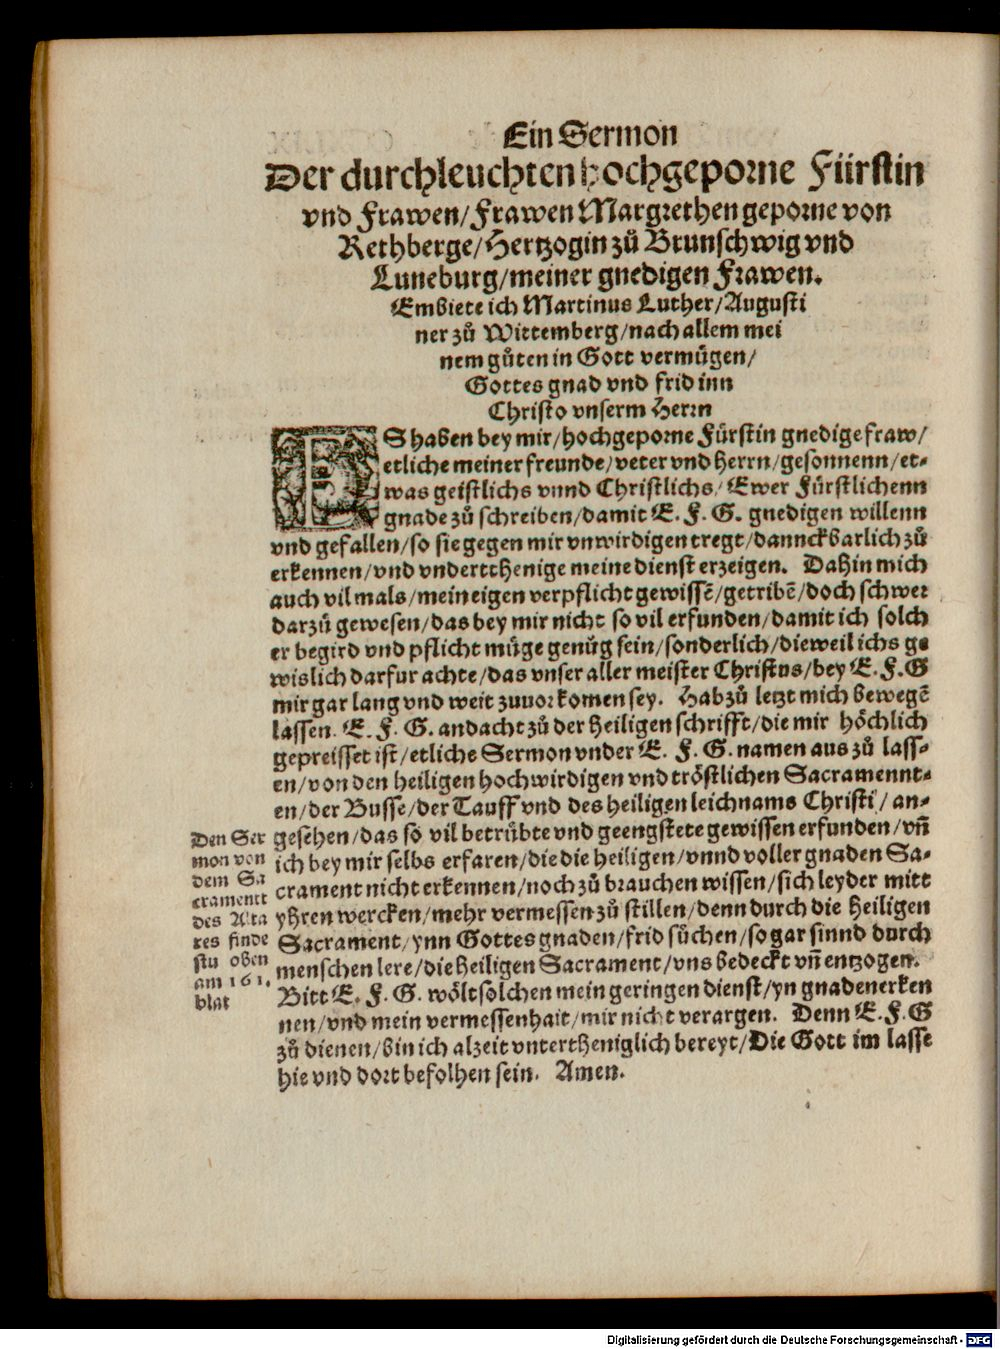 Ein Sermon
Der durchleuchten hochgeporne Fürstin
vnd Frawen/Frawen Margrethen geporne von
Rethberge/Hertzogin zů Brunschwig vnd
Luneburg/meiner gnedigen Frawen.
Embiete ich Martinus Luther/Augusti
ner zů Wittemberg/nach allem mei
nem gůten in Gott vermügen/
Gottes gnad vnd frid inn
Christo vnserm Herrn
ES haben bey mir/hochgeporne Fürstin gnedige fraw/
etliche meiner freunde/veter vnd herrn/gesonnenn/et-
was geistlichs vnnd Christlichs/ Ewer Fürstlichenn
gnade zů schreiben/damit E. F. G. gnedigen willenn
vnd gefallen/so sie gegen mir vnwirdigen tregt/dannckbarlich zů
erkennen/vnd vndertthenige meine dienst erzeigen. Dahin mich
auch vil mals/mein eigen verpflicht gewissẽ/getribẽ/doch schwer
darzů gewesen/das bey mir nicht so vil erfunden/damit ich solch
er begird vnd pflicht müge genůg sein/sonderlich/dieweil ichs ge
wislich darfur achte/das vnser aller meister Christus/bey E.F.G
mir gar lang vnd weit zuuorkomen sey. Hab zů letzt mich bewegẽ
lassen. E. F. G. andacht zů der heiligen schrifft/die mir höchlich
gepreisset ist/etliche Sermon vnder E. F. G. namen aus zů lass-
en/von den heiligen hochwirdigen vnd tröstlichen Sacramennt-
en/der Busse/der Tauff vnd des heiligen leichnams Christi/ an-
gesehen/das so vil betrübte vnd geengstete gewissen erfunden/vñ
ich bey mir selbs erfaren/die die heiligen/vnnd voller gnaden Sa-
crament nicht erkennen/noch zů brauchen wissen/sich leyder mitt
yhren wercken/mehr vermessen zů stillen/denn durch die heiligen
Sacrament/ynn Gottes gnaden/frid sůchen/so gar sinnd durch
menschen lere/die heiligen Sacrament/vns bedeckt vñ entzogen.
Bitt E. F. G. wölt solchen mein geringen dienst/yn gnaden erken
nen/vnd mein vermessenhait/mir nicht verargen. Denn E.F.G
zů dienen/bin ich alzeit vntertheniglich bereyt/Die Gott im lasse
hie vnd dort befolhen sein. Amen.
Den Ser
mon von
dem Sa
cramentt
des Alta
res finde
stu oben
am 161.
blat
Digitalisierung gefördert durch die Deutsche Forschungsgemeinschaft - DFG